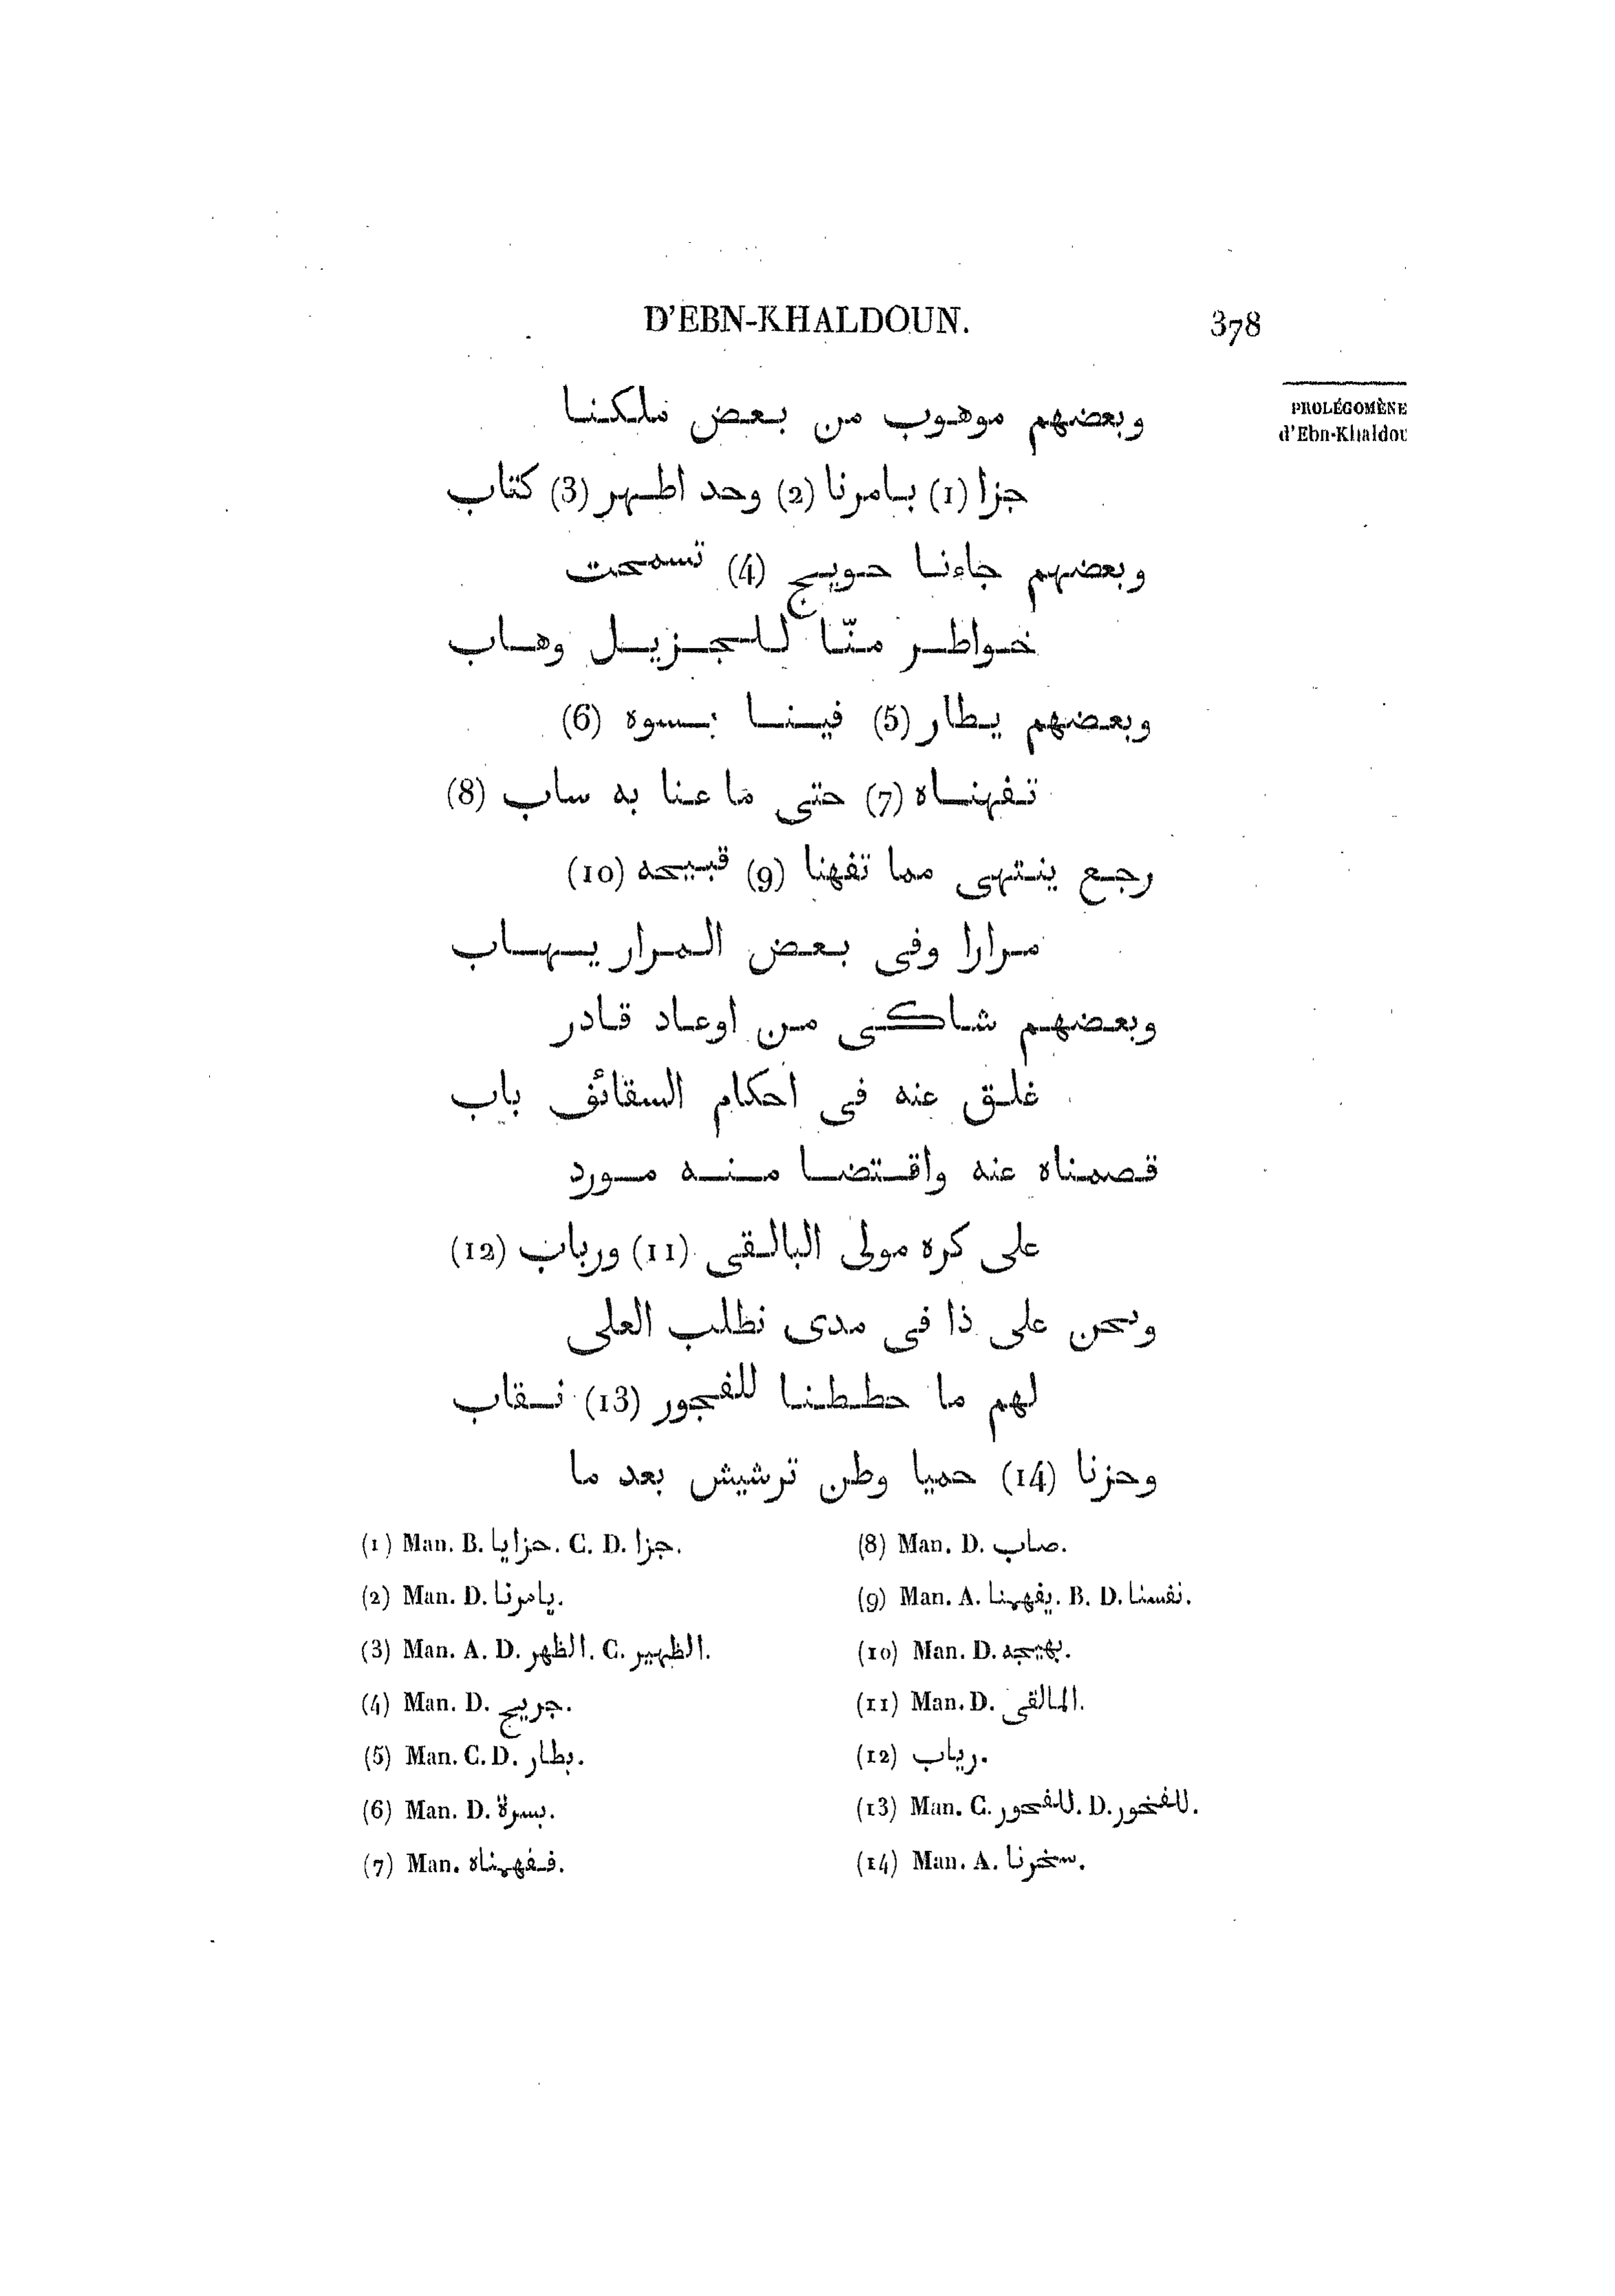 D'EBN-KHALDOUN. 378
PROLÉGOMÈNE
d'Ebn-Khaldou
وبعضهم موهوب من بعض ملكنا
جزا (1) بامرنا (2) وحد اظهر (3) كتاب
وبعضهم جاءنا حويج (4) تسمحت
خواطر منّا للجزيل وهاب
وبعضهم يطار (5) فينا بسوه (6)
تفهناه (7) حتى ما عنا به ساب (8)
رجع ينتهى مما تفهنا (9) قبيحه (10)
مرارا وفى بعض المرار يهاب
وبعضهم شاكى من اوعاد قادر
غلق عنه فى احكام السقائف باب
قصمناه عنه واقتضا منه مورد
على كره مولى البالقى (11) ورباب (12)
ونحن على ذا فى مدى نطلب العلى
لهم ما حططنا للفجور (13) نقاب
وحزنا (14) حميا وطن ترشيش بعد ما
(1) Man. B. حزايا. C. D. جزا.
(2) Man. D. يامرنا.
(3) Man. A. D. الظهر. C. الظهير.
(4) Man. D. جريج.
(5) Man. C. D. بطار.
(6) Man. D. بسرة.
(7) Man. ففهمناه.
(8) Man. D. صاب.
(9) Man. A. يفهمنا. B. D. نفسنا.
(10) Man. D. بهيجه.
(11) Man. D. المالقى.
(12) رياب.
(13) Man. C. للفحور. D. للفخور.
(14) Man. A. سخرنا.